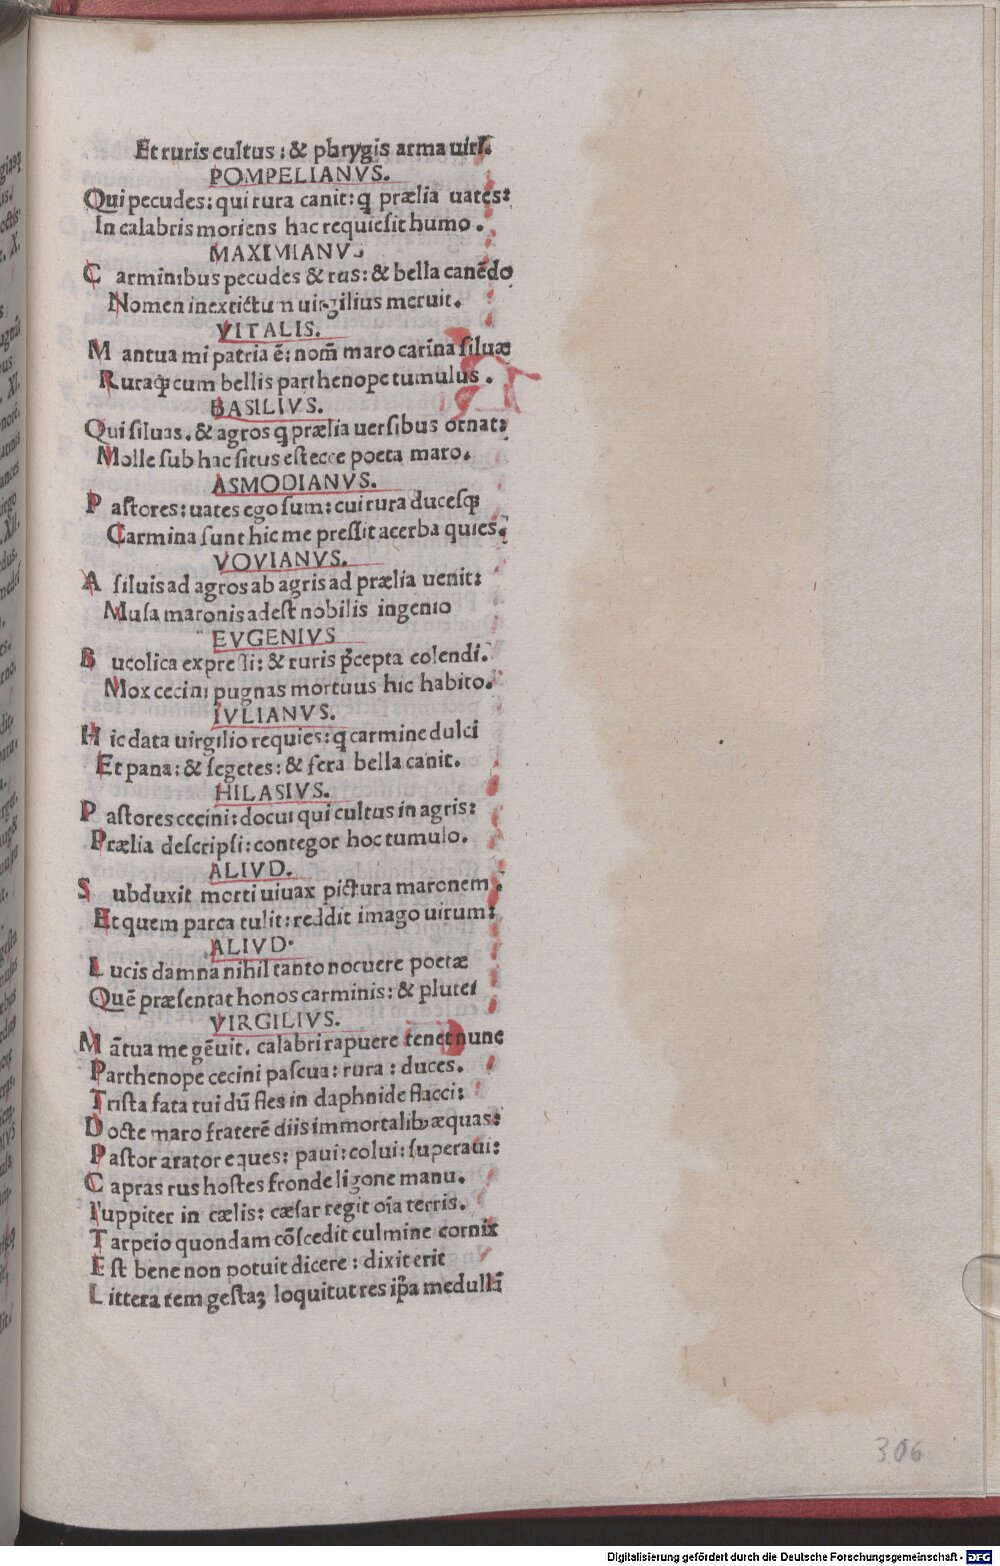 Et ruris cultus : & phrygis arma uiri.
POMPELIANVS.
Qui pecudes: qui rura canit: ꝙ prælia uates:
In calabris moriens hac requiesit humo.
MAXIMIANVS
C arminibus pecudes & rus: & bella canēdo
Nomen inextictum uirgilius meruit.
VITALIS.
M antua mi patria ē: nom̄ maro carīna siluæ
Ruraq; cum bellis parthenope tumulus.
BASILIVS.
Qui siluas. & agros ꝙ prælia uersibus ornat:
Molle sub hac situs est ecce poeta maro.
ASMODIANVS.
P astores: uates ego sum: cui rura ducesq;
Carmina sunt hic me pressit acerba quies.
VOVIANVS.
A siluis ad agros ab agris ad prælia uenit:
Musa maronis adest nobilis ingenio
EVGENIVS
B ucolica expressi: & ruris p̄cepta colendi.
Mox cecini pugnas mortuus hic habito.
IVLIANVS.
H ic data uirgilio requies: ꝙ carmine dulci
Et pana: & segetes: & fera bella canit.
HILASIVS.
P astores cecini: docui qui cultus in agris:
Prælia descripsi: contegor hoc tumulo.
ALIVD.
S ubduxit morti uiuax pictura maronem:
Et quem parca tulit: reddit imago uirum:
ALIVD.
L ucis damna nihil tanto nocuere poetæ
Quē præsentat honos carminis: & plutei
VIRGILIVS.
M ātua me gēuit. calabri rapuere tenet nunc
Parthenope cecini pascua: rura : duces.
Trista fata tui dū fles in daphnide flacci:
D octe maro fraterē diis immortalibꝰ æquas:
Pastor arator eques: paui: colui: superaui:
C apras rus hostes fronde ligone manu.
Iuppiter in cælis: cæsar regit oīa terris.
T arpeio quondam cōscedit culmine cornix
E st bene non potuit dicere : dixit erit
L ittera rem gestaꝫ loquitut res ip̄a medullā
306
Digitalisierung gefördert durch die Deutsche Forschungsgemeinschaft - DFG